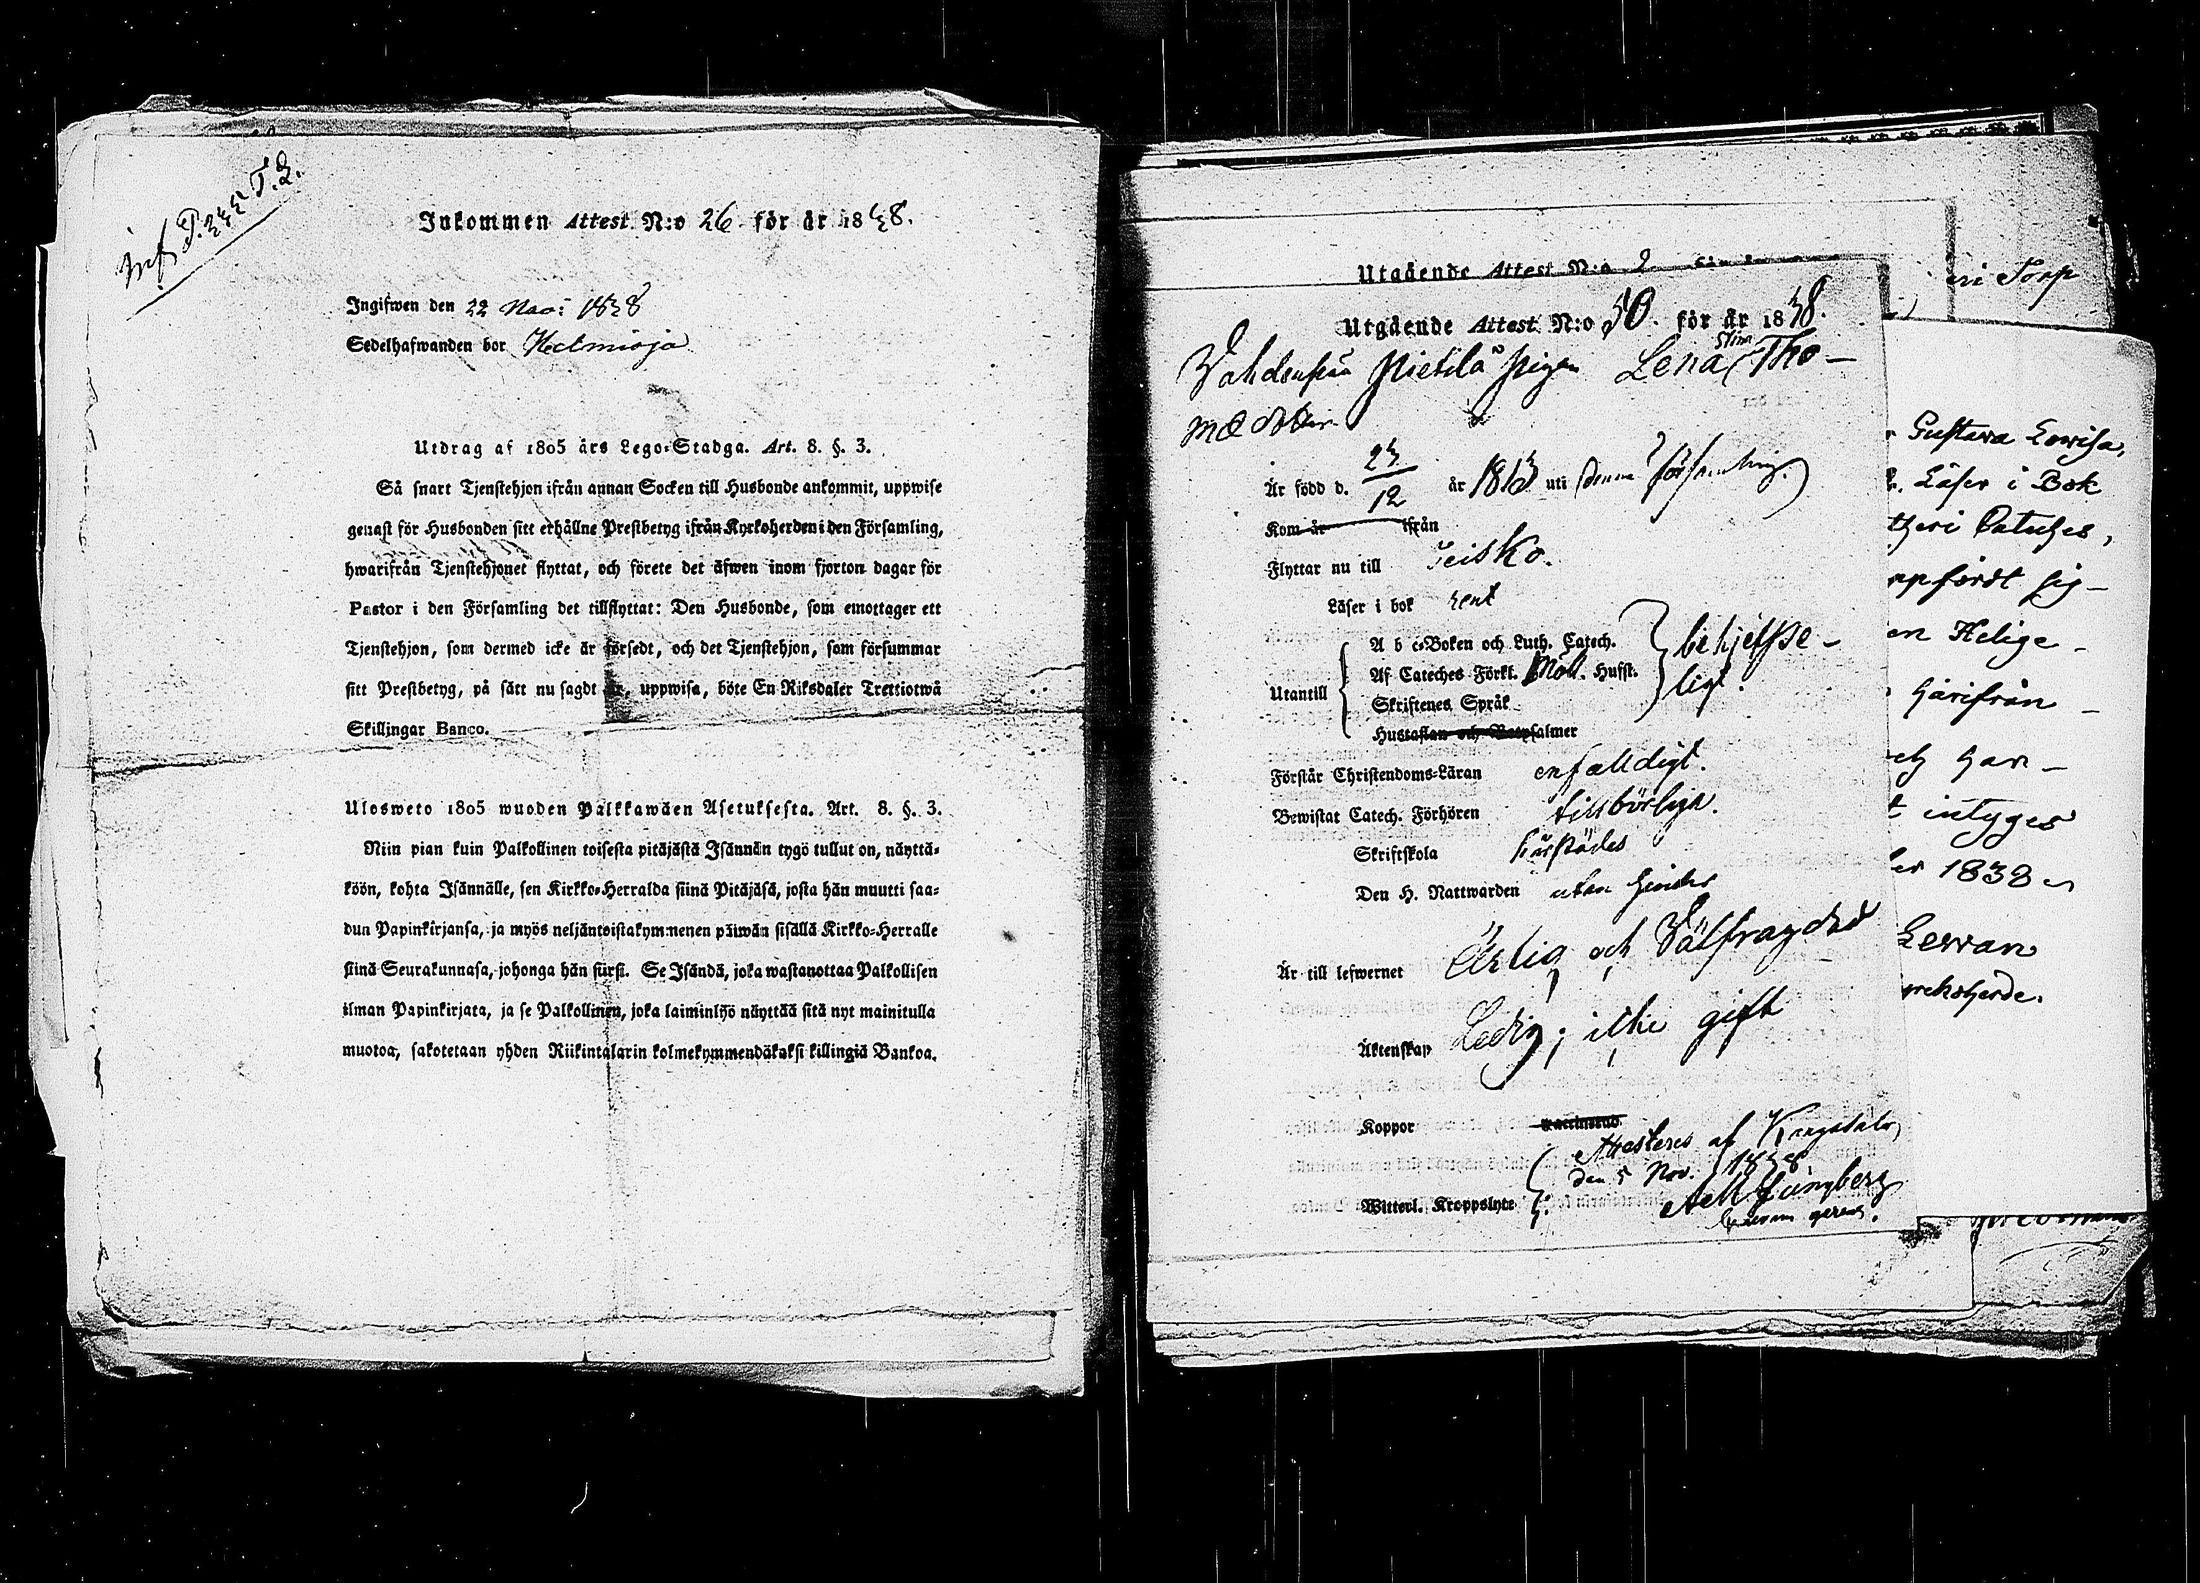 Inf. P. 333 T. 2.
Inkommen Attest. N:o 26 för år 1838.
Ingifwen den 22 Nov: 1838
Sedelhafwanden bor
Utdrag af 1805 års Lego-Stadga. Art. 8. §. 3.
Så snart Tjenstehjon ifrån annan Socken till Husbonde ankommit, uppwise
genast för Husbonden sitt erhållne Prestbetyg ifrån Kyrkoherden i den Församling,
hwarifrån Tjenstehjonet flyttat, och förete det äfwen inom fjorton dagar för
Pastor i den Församling det tillflyttat: Den Husbonde, som emottager ett
Tjenstehjon, som dermed icke är försedt, och det Tjenstehjon, som försummar
sitt Prestbetyg, på sätt nu sagdt är, uppwisa, böte En Riksdaler Trettiotwå
Skillingar Banco.
Ulosweto 1805 wuoden Palkkawäen Asetuksesta. Art. 8. §. 3.
Niin pian kuin Palkollinen toisesta pitäjästä Isännän tygö tullut on, näyttä-
köön, kohta Isännälle, sen Kirkko-Herralda siinä Pitäjäsä, josta hän muutti saa-
dun Papinkirjansa, ja myös neljäntoistakymmenen päiwän sisällä Kirkko-Herralle
siinä Seurakunnasa, johonga hän siirsi. Se Isändä, joka wastanottaa Palkollisen
ilman Papinkirjata, ja se Palkollinen, joka laiminlyö näyttää sitä nyt mainitulla
muotoa, sakotetaan yhden Riikintalarin kolmekymmendäkaksi killingiä Bankoa.
Utgående Attest N:o 2
Utgående Attest. N:o 50. för år 1838.
Stina
Pietilä pigan Lena Tho-
mædotter
Är född d. 23/12 år 1813 uti denna församling.
Kom år ifrån
Flyttar nu till Teisko.
Läser i bok rent
Utantill
A b c-Boken och Luth. Catech.
Af Cateches Förkl. Hufst.
Skriftenes Språk
Hustaflan och Botpsalmer
behjelpe-
ligt.
Förstår Christendoms-Läran enfalldigt.
Bewistat Catech. Förhören tillbörligen.
Skriftskola härstädes
Den H. Nattwarden utan hinder
Är till lefwernet Ärlig och Välfrägdad
Äktenskap Ledig; icke gift
Koppor
Witterl. Kroppslyte
Attesteras af Kangasala
den 5 Nov. 1838
eri Torp
Gustava Lovisa,
Läser i Bok
theri Catuhes,
uppfördt sig
en Helige
härifrån
och har
intyges
er 1838
Lewan
yrckoherde.